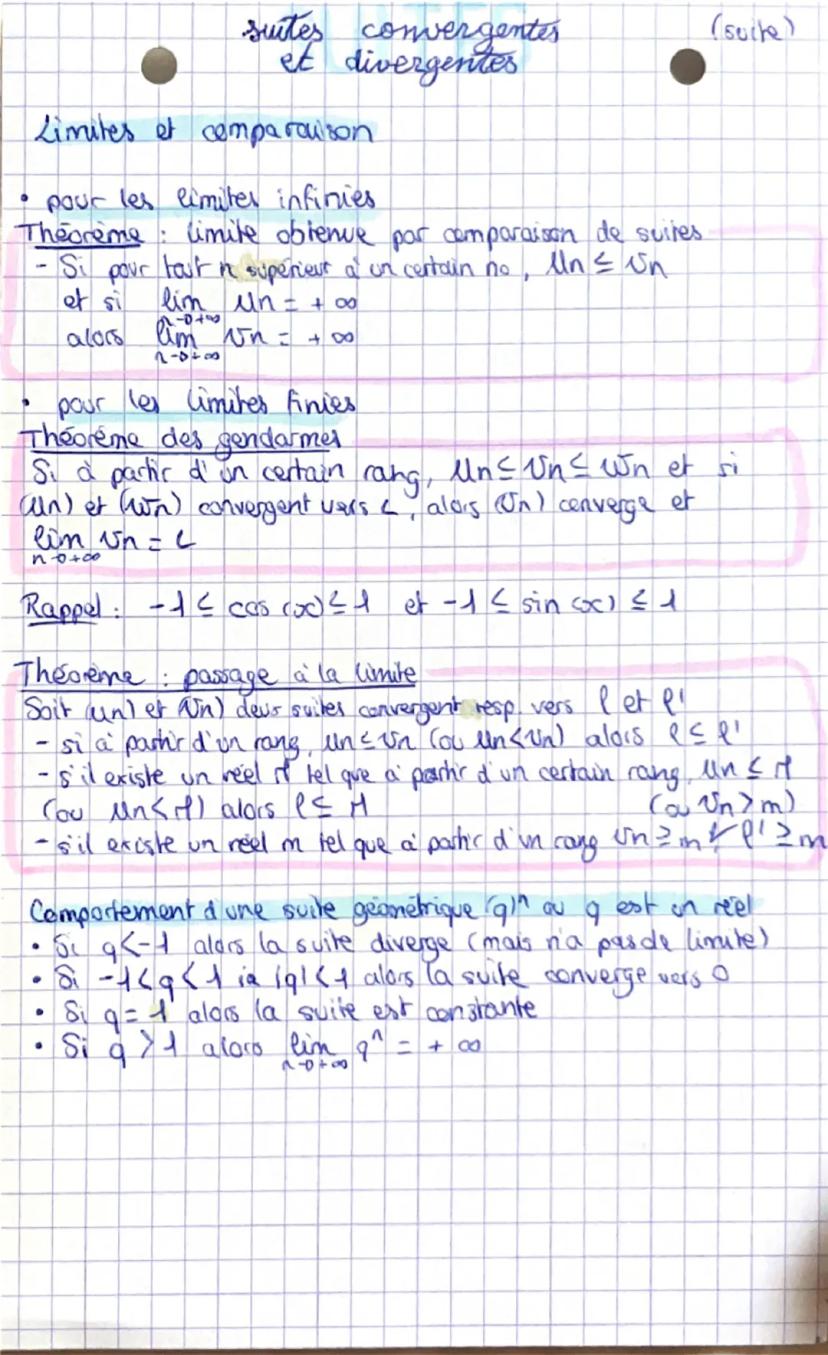 suites convergentes (suite)
et divergentes
Limites et comparaison
• pour les limites infinies
Théorème : limite obtenue par comparaison de suites
- Si pour tout n supérieur à un certain n₀, Un ≤ Vn
et si lim Un = + ∞
n→+∞
alors lim Vn = + ∞
n→+∞
• pour les limites finies
Théorème des gendarmes
Si à partir d'un certain rang, Un ≤ Vn ≤ Wn et si
(Un) et (Wn) convergent vers L, alors (Vn) converge et
lim Vn = L
n→+∞
Rappel : -1 ≤ cos (x) ≤ 1 et -1 ≤ sin (x) ≤ 1
Théorème : passage à la limite
Soit (Un) et (Vn) deux suites convergent resp. vers l et l'
- si à partir d'un rang, Un ≤ Vn (ou Un < Vn) alors l ≤ l'
- s'il existe un réel M tel que à partir d'un certain rang, Un ≤ M
(ou Un < M) alors l ≤ M (ou Vn > m)
- s'il existe un réel m tel que à partir d'un rang Vn ≥ m l' ≥ m
Comportement d'une suite géométrique (q)ⁿ ou q est un réel
• Si q < -1 alors la suite diverge (mais n'a pas de limite)
• Si -1 < q < 1 ie |q| < 1 alors la suite converge vers 0
• Si q = 1 alors la suite est constante
• Si q > 1 alors lim qⁿ = + ∞
n→+∞